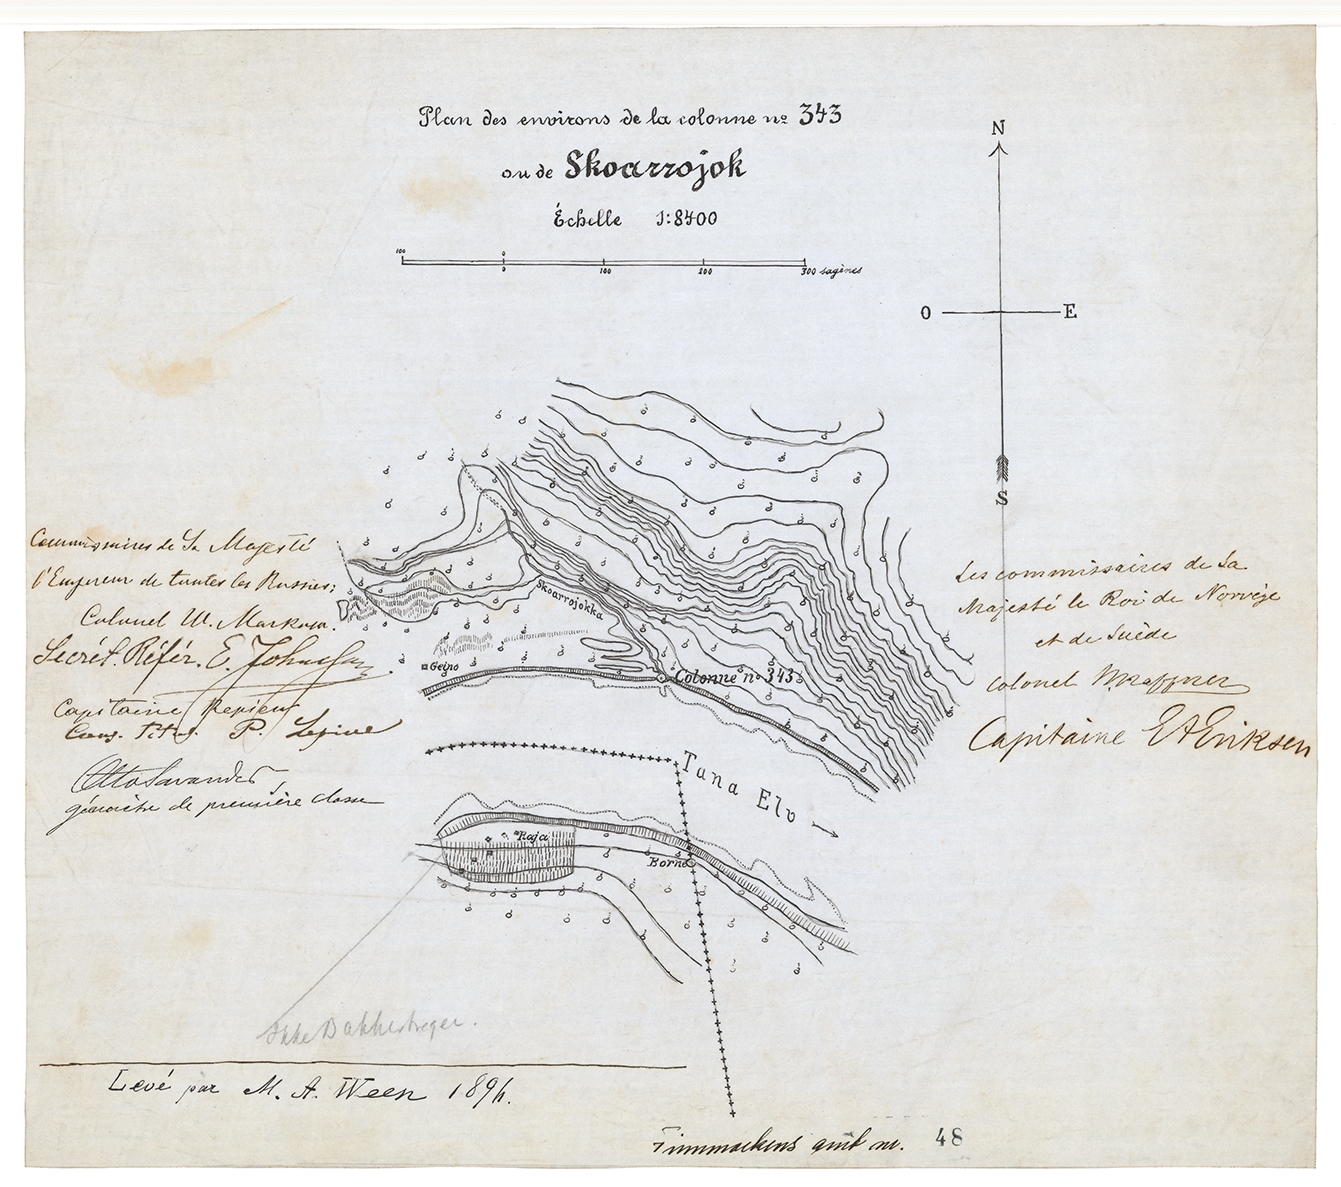 Plan des environs de la colonne nº 343
ou de Skoarrojok
Échelle 1:8400
100 0
0 100 200 300 sagènes
N
O E
S
Commissaires de Sa Majesté
l'Empereur de toutes les Russies;
Colonel W.
Secrét. Référ. E.
Capitaine
P.
géomètre de première classe
Les commissaires de Sa
Majesté le Roi de Norvège
et de Suède
Colonel
Capitaine E A Eriksen
Skoarrojokka
Geino
Colonne nº 343
Tana Elv
Raja
Borne
Ikke Bakkestreger.
Levé par M. A. Ween 1896.
Finmarkens amt nr. 48